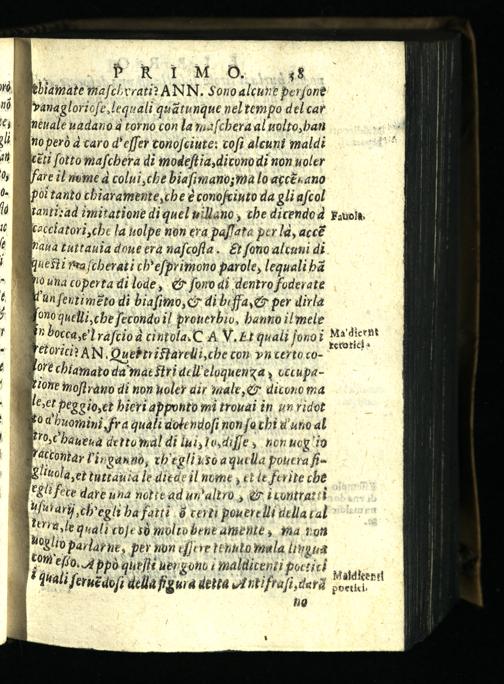 PRIMO. 38
chiamate mascherati? ANN. Sono alcune persone
vanagloriose, lequali quãtunque nel tempo del car
neuale uadano à torno con la maschera al uolto, han
no però à caro d'esser conosciute: cosi alcuni maldi
cẽti sotto maschera di modestia, dicono di non uoler
fare il nome à colui, che biasimano; ma lo accẽnano
poi tanto chiaramente, che è conosciuto da gli ascol
tanti: ad imitatione di quel uillano, che dicendo à
Fauola.
cacciatori, che la uolpe non era passata per là, accẽ
naua tuttauia doue era nascosta. Et sono alcuni di
questi mascherati ch'esprimono parole, lequali hã
no una coperta di lode, & sono di dentro foderate
d'un sentimẽto di biasimo, & di beffa, & per dirla
sono quelli, che secondo il prouerbio, hanno il mele
in bocca, e'l rasoio à cintola. CAV. Et quali sono i
Maldicenti
retorici.
retorici? AN. Quei tristarelli, che con vn certo co-
lore chiamato da maestri dell'eloquenza, occupa-
tione mostrano di non uoler dir male, & dicono ma
le, et peggio, et hieri apponto mi trouai in un ridot
to d'huomini, fra quali dolendosi non so chi d'uno al
tro, c'haueua detto mal di lui, Io, disse, non uoglio
raccontar l'inganno, ch'egli usò a quella pouera fi-
gliuola, et tuttauia le diede il nome, et le ferite che
egli fece dare una notte ad un'altro, & i contratti
usurarij, ch'egli ha fatti à certi pouerelli della tal
terra, le quali cose sò molto bene amente, ma non
uoglio parlarne, per non essere tenuto mala lingua
com'esso. Appò questi uengono i maldicenti poetici
Maldicenti
poetici.
i quali seruẽdosi della figura detta Antifrasi, darã
no